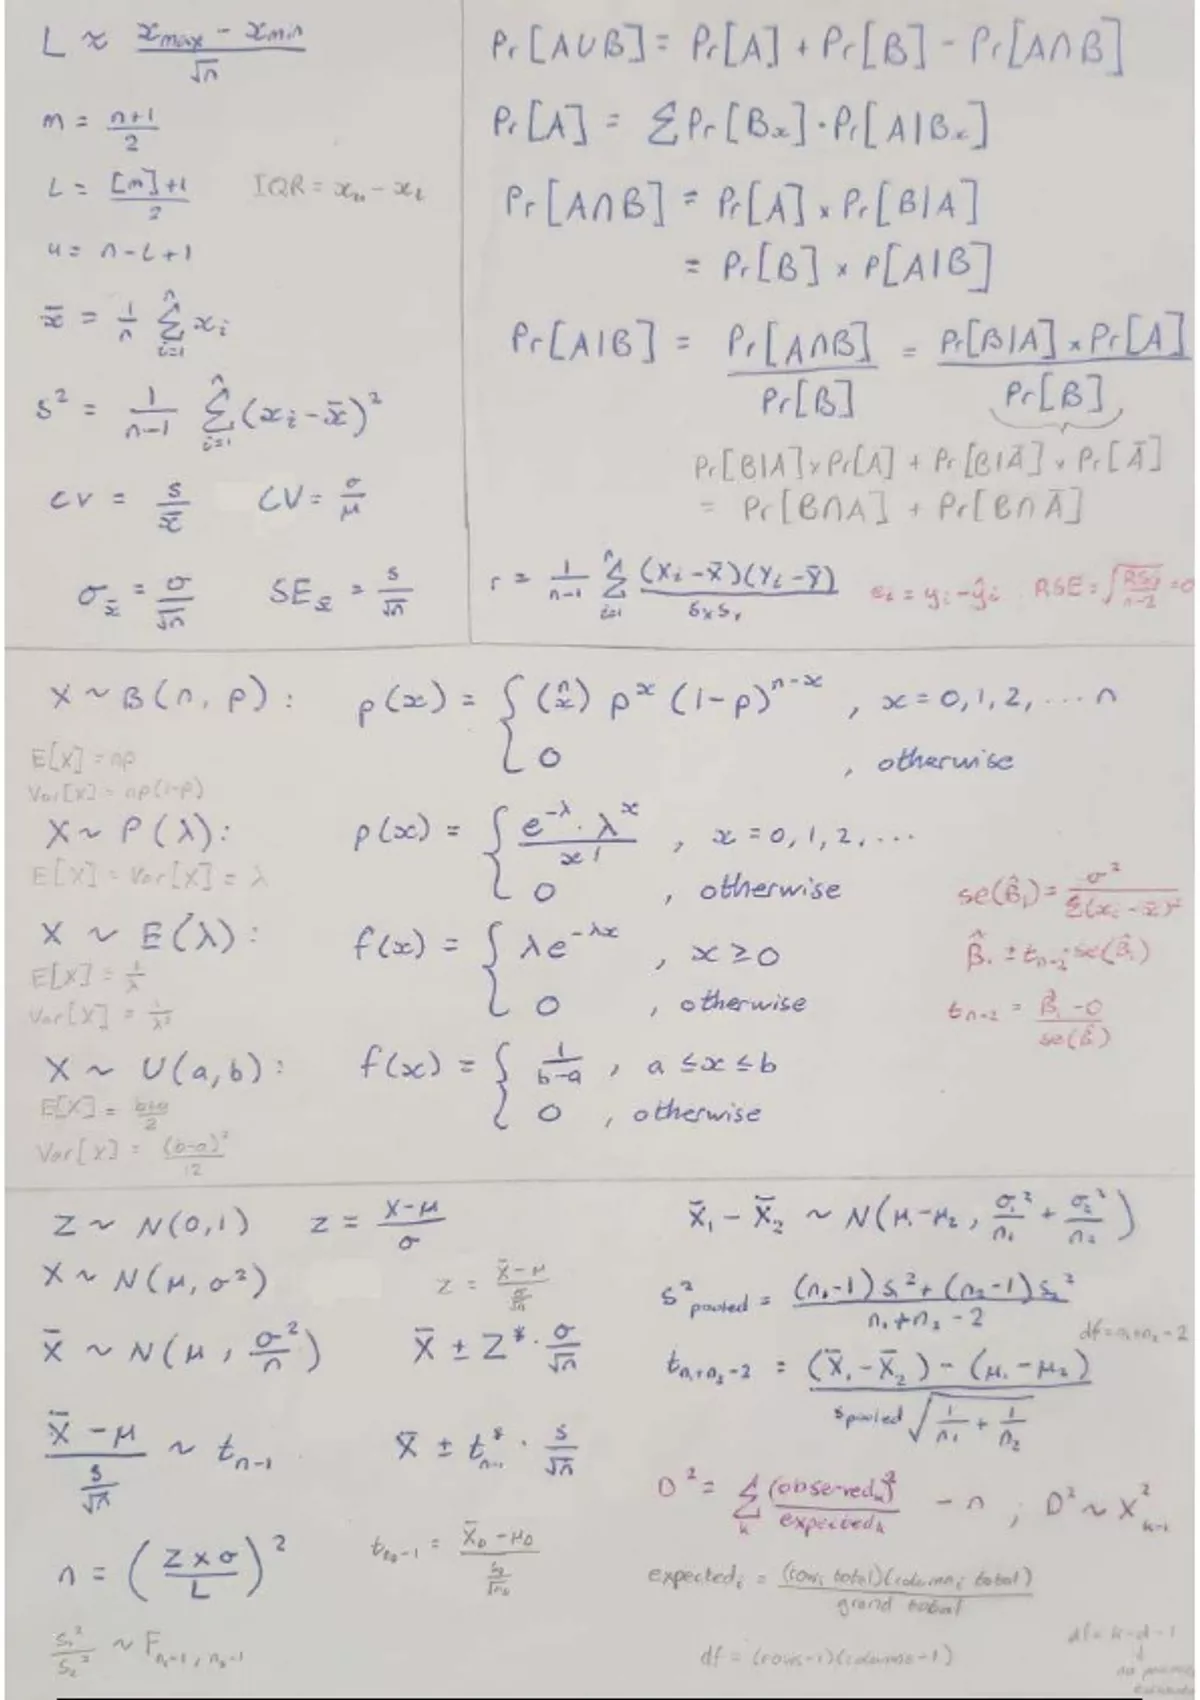 L ≈ (x_max − x_min) / √n
m = (n+1) / 2
L = ([m]+1) / 2    IQR = x_u − x_l
u = n−L+1
x̄ = 1/n Σ_{i=1}^{n} x_i
s² = 1/(n−1) Σ_{i=1}^{n} (x_i − x̄)²
CV = s/x̄    CV = σ/μ
σ_x̄ = σ/√n    SE_x̄ = s/√n
Pr[A∪B] = Pr[A] + Pr[B] − Pr[A∩B]
Pr[A] = ΣPr[B_x]·Pr[A|B_x]
Pr[A∩B] = Pr[A] × Pr[B|A]
= Pr[B] × P[A|B]
Pr[A|B] = Pr[A∩B] / Pr[B] = Pr[B|A] × Pr[A] / Pr[B]
Pr[B|A] × Pr[A] + Pr[B|Ā] × Pr[Ā]
= Pr[B∩A] + Pr[B∩Ā]
r = 1/(n−1) Σ_{i=1}^{n} (X_i − X̄)(Y_i − Ȳ) / s_X s_Y    e_i = y_i − ŷ_i    RSE = √
X ~ B(n, p) :    p(x) = { (n x) p^x (1−p)^{n−x} , x = 0, 1, 2, ... n
E[X] = np    0 , otherwise
Var[X] = np(1−p)
X ~ P(λ) :    p(x) = { e^{−λ} · λ^x / x! , x = 0, 1, 2, ...
E[X] = Var[X] = λ    0 , otherwise
se(β̂₁) = σ² / Σ(x_i − x̄)²
X ~ E(λ) :    f(x) = { λe^{−λx} , x ≥ 0
β̂₁ ± t_{n−2} se(β̂₁)
E[X] = 1/λ    0 , otherwise
Var[X] = 1/λ²
t_{n−2} = (β̂₁ − 0) / se(β̂)
X ~ U(a, b) :    f(x) = { 1/(b−a) , a ≤ x ≤ b
E[X] = (b+a)/2    0 , otherwise
Var[X] = (b−a)² / 12
Z ~ N(0, 1)    z = (X−μ) / σ
X ~ N(μ, σ²)    z = (X̄ − μ) / (σ/√n)
X̄ ~ N(μ, σ²/n)    X̄ ± Z* · σ/√n
(X̄ − μ) / (s/√n) ~ t_{n−1}    X̄ ± t*_{n−1} · s/√n
n = (Z×σ / L)²    t_{n_D−1} = (X̄_D − μ_D) / (s_D/√n_D)
s₁²/s₂² ~ F_{n₁−1, n₂−1}
X̄₁ − X̄₂ ~ N(μ₁−μ₂, σ₁²/n₁ + σ₂²/n₂)
s²pooled = ((n₁−1)s₁² + (n₂−1)s₂²) / (n₁+n₂−2)
df = n₁+n₂−2
t_{n₁+n₂−2} = ((X̄₁ − X̄₂) − (μ₁ − μ₂)) / (s pooled √(1/n₁ + 1/n₂))
D² = Σ_k (observed_k)² / expected_k − n ; D² ~ X²_{k−1}
expected_i = (row_i total)(column_i total) / grand total
df = (rows−1)(columns−1)    df = k−d−1